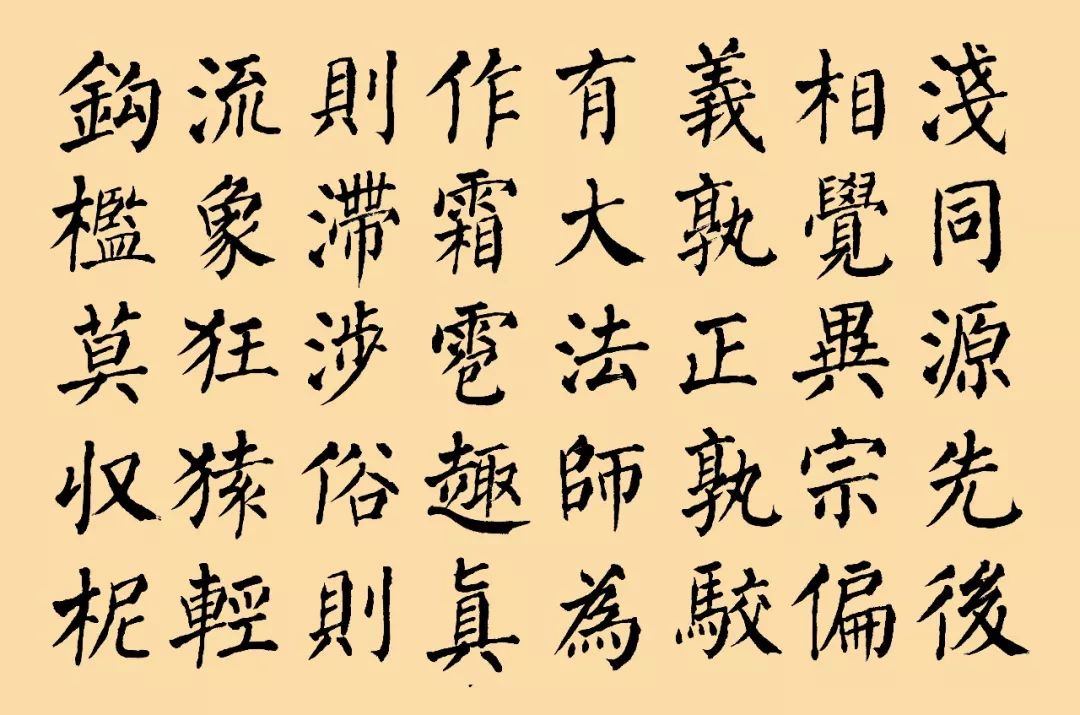 淺同源先後
相覺異宗偏
義孰正孰駮
有大法師為
作霜雹趣真
則滯涉俗則
流象狂猿輕
鈎檻莫収柅